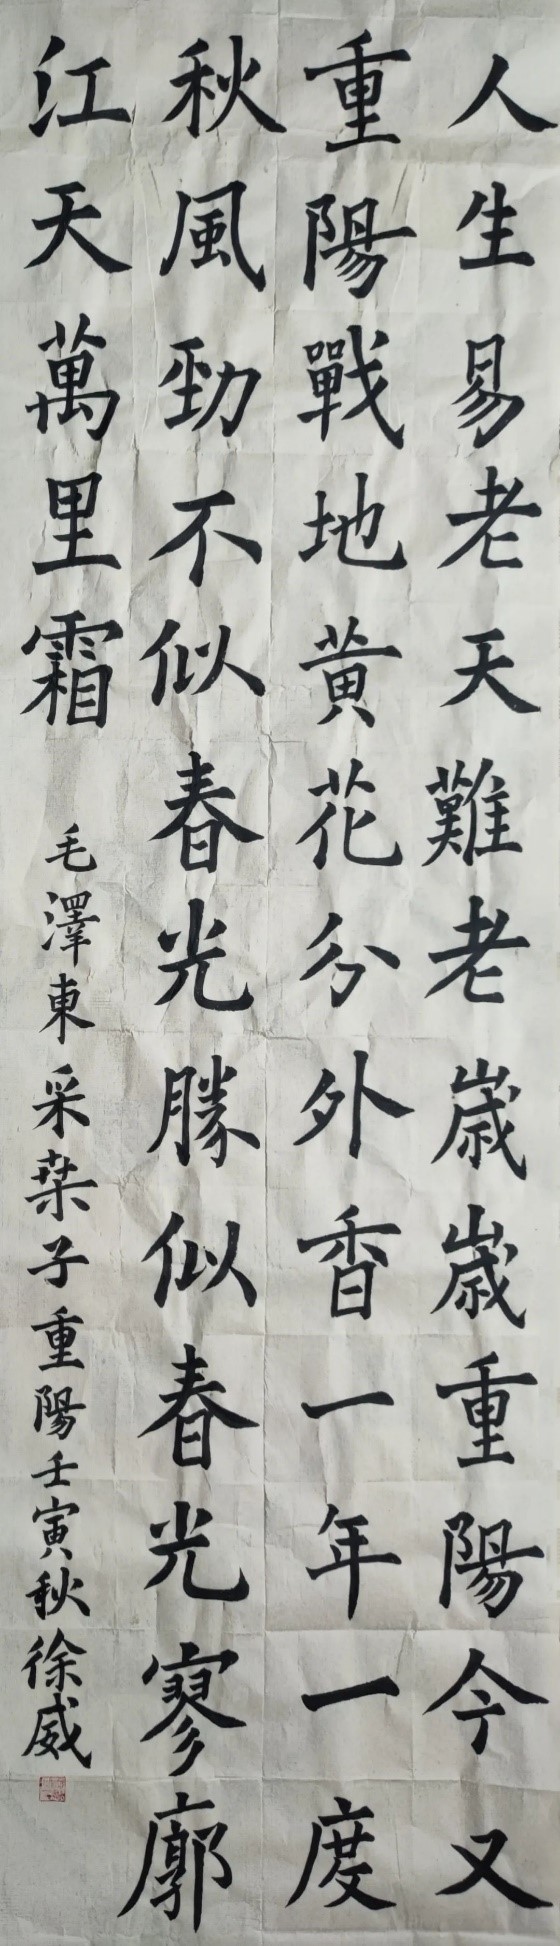 人生易老天難老歲歲重陽今又
重陽戰地黄花分外香一年一度
秋風勁不似春光勝似春光寥廓
江天萬里霜
毛澤東采桒子重陽壬寅秋徐威